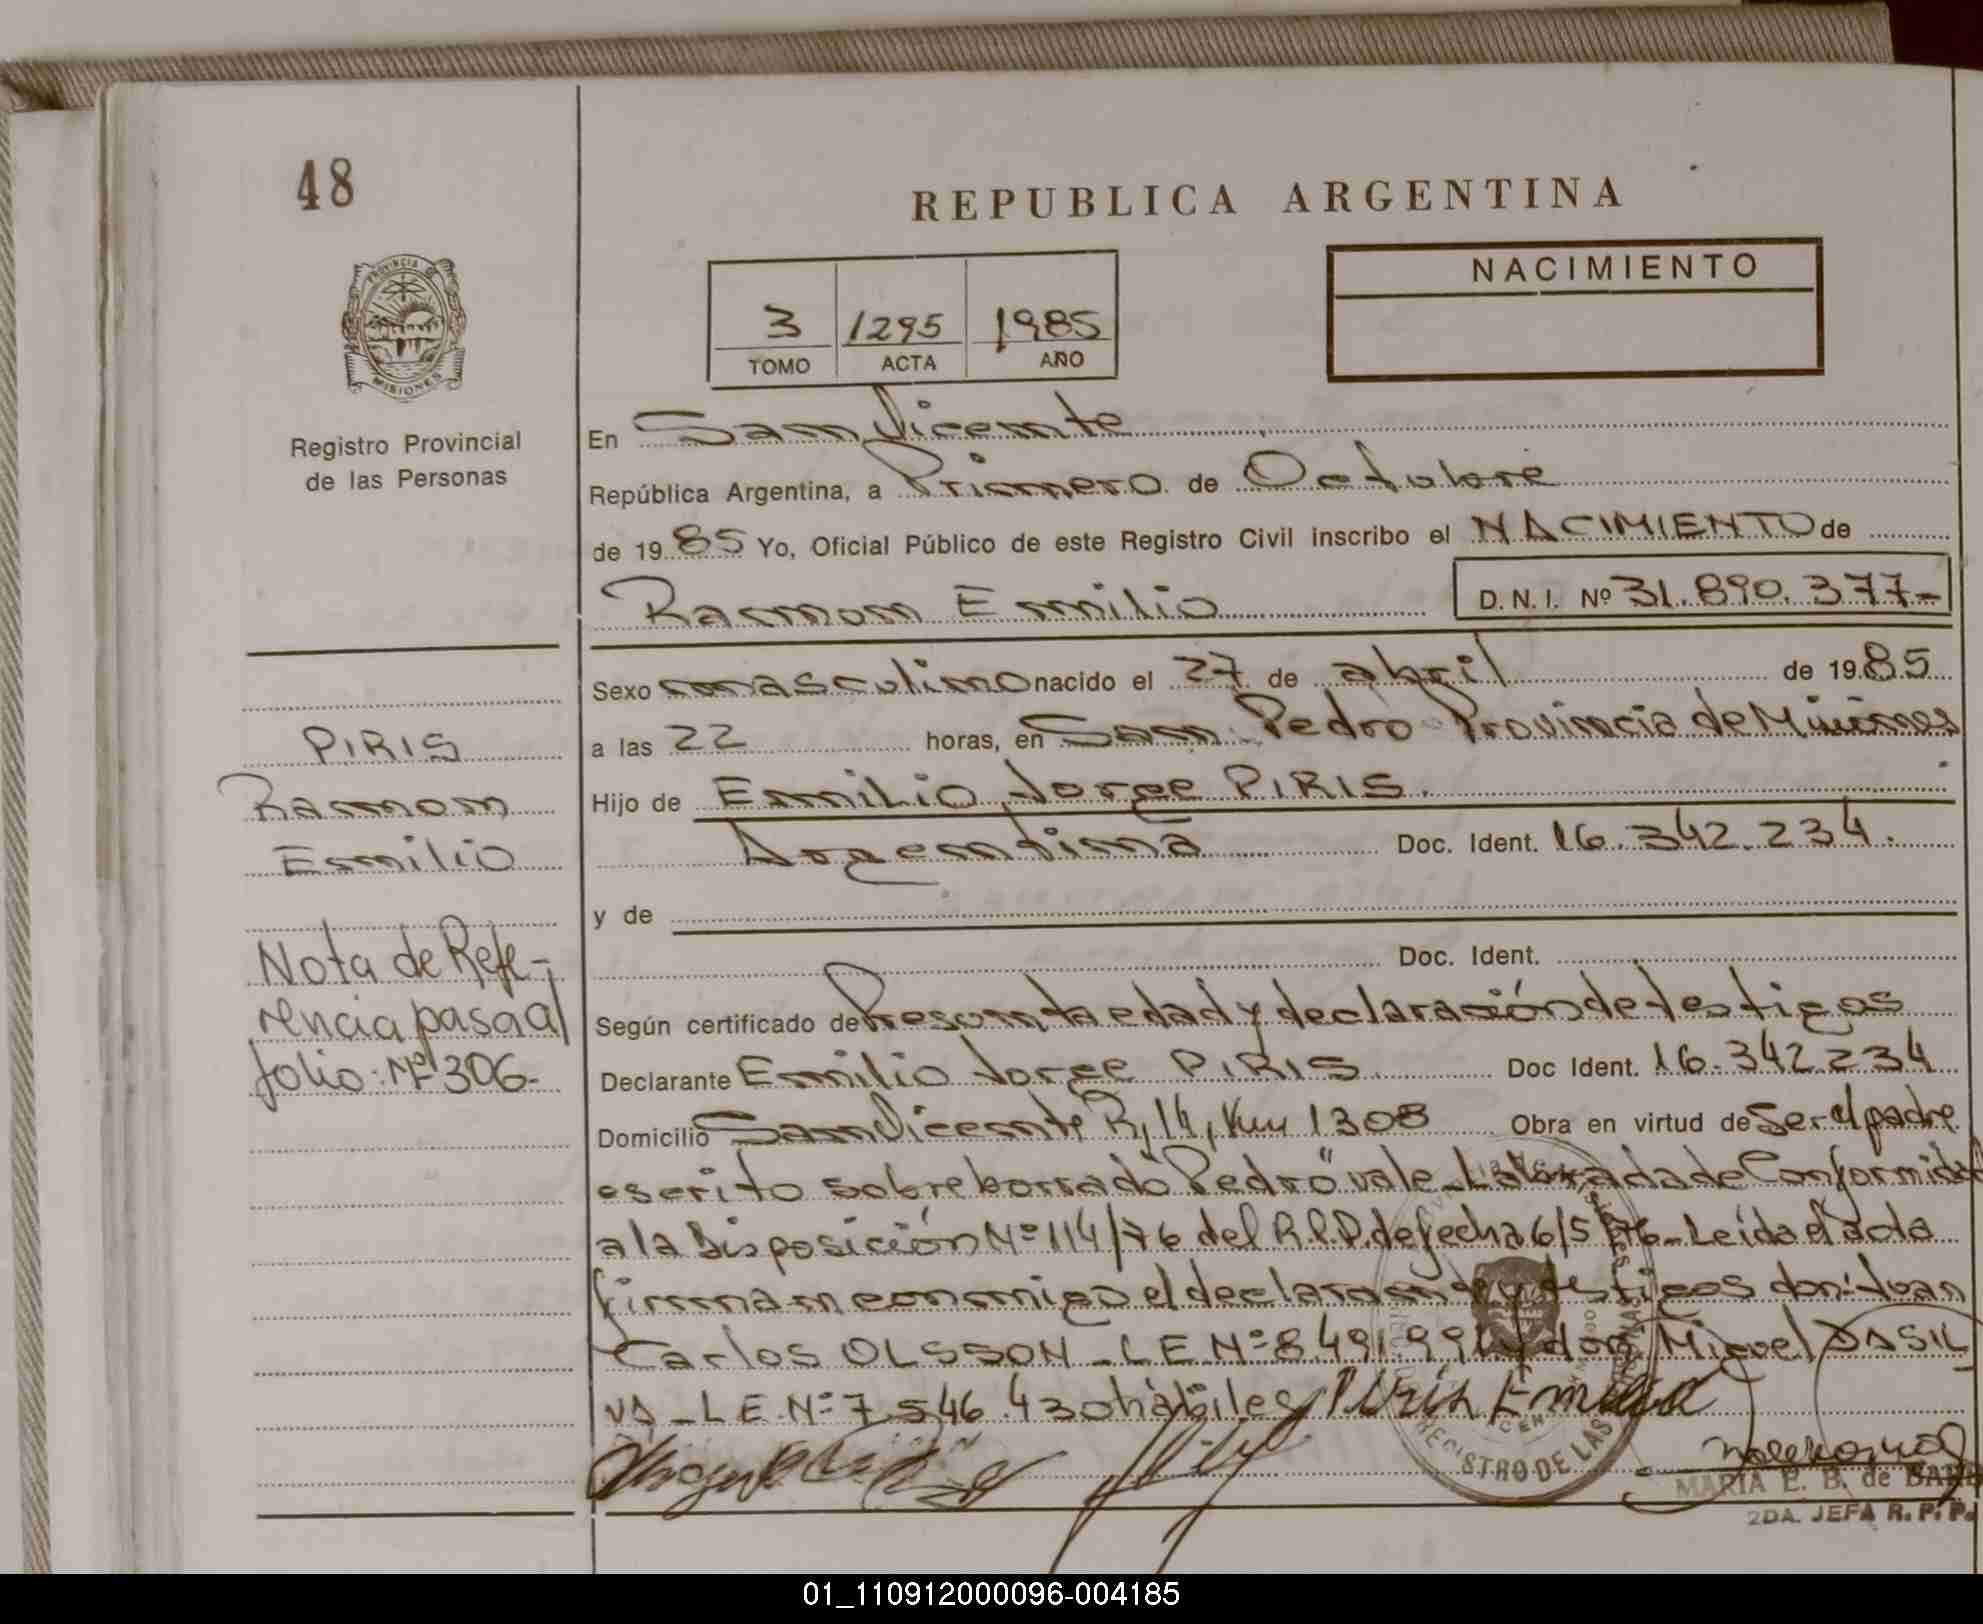 48
REPUBLICA ARGENTINA
PROVINCIA DE
MISIONES
Registro Provincial
de las Personas
3 1295 1985
TOMO ACTA AÑO
NACIMIENTO
En San Vicente
República Argentina, a Primero de Octubre
de 1985 Yo, Oficial Público de este Registro Civil inscribo el NACIMIENTO de
Ramon Emilio D.N.I. Nº 31.890.377-
Sexo masculino nacido el 27 de abril de 1985
a las 22 horas, en San Pedro Provincia de Misiones
Hijo de Emilio Jorge PIRIS.
Argentina Doc. Ident. 16.342.234.
y de
Doc. Ident.
Según certificado de Presunta edad y declaración de testigos
Declarante Emilio Jorge PIRIS Doc Ident. 16.342.234
Domicilio San Vicente R, 14, Km 1308 Obra en virtud de Ser el padre
escrito sobre borrado "Pedro" vale_ Labrada de Conformidad
a la Disposición Nº 114/76 del R.P.P. de fecha 6/5/76_ Leída el acta
firman conmigo el declarante y testigos don: Juan
Carlos OLSSON_ LE Nº 8.491.991 y don Miguel DA SIL
VA _ L E. Nº 7.546.430 hábiles
Piris Emilio
REGISTRO DE LAS
MARIA E. B. de
2DA. JEFA R. P. P.
PIRIS
Ramon
Emilio
Nota de Refe-
rencia pasa al
folio: Nº 306-
01_110912000096-004185